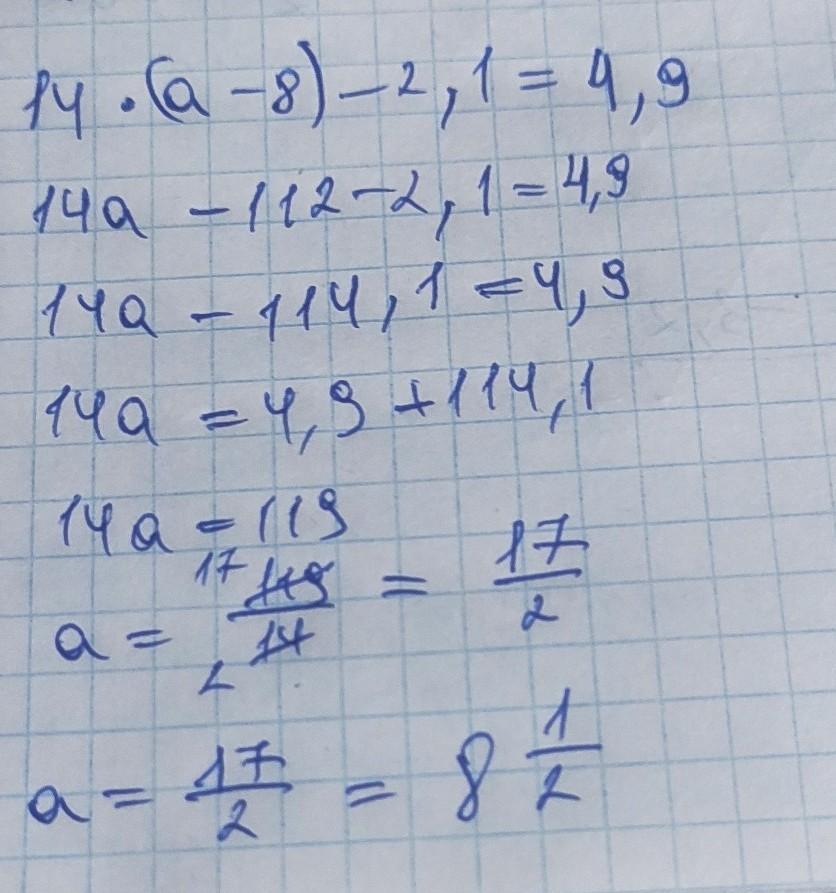 14 · (a - 8) - 2,1 = 4,9
14a - 112 - 2,1 = 4,9
14a - 114,1 = 4,9
14a = 4,9 + 114,1
14a = 119
a = 17 119/14 2 = 17/2
a = 17/2 = 8 1/2